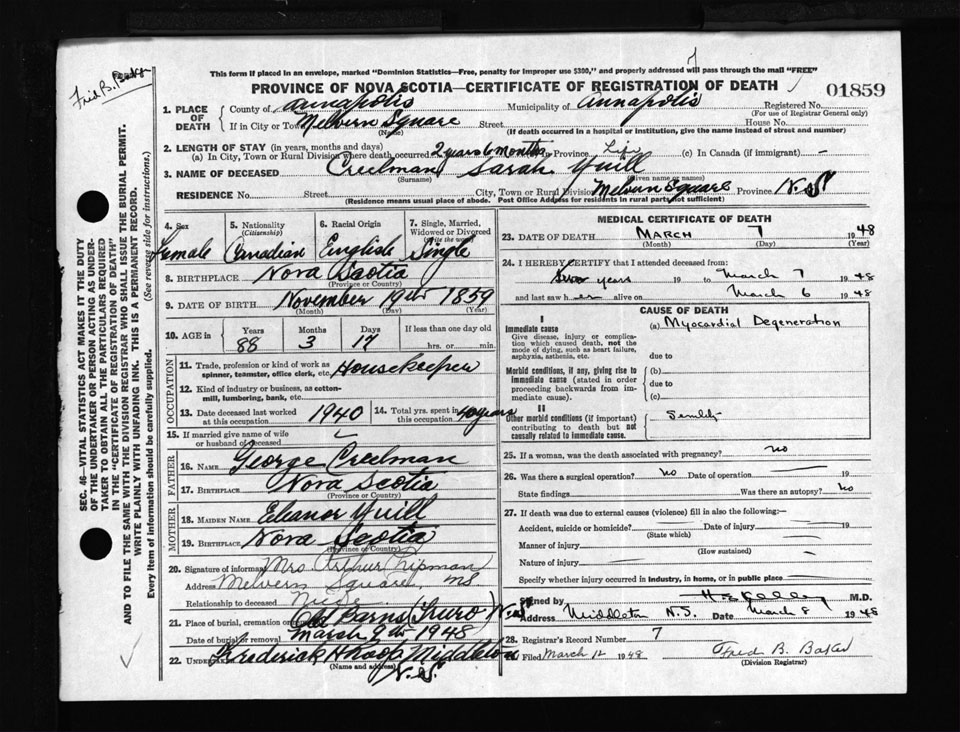 Fred B. Baker
This form if placed in an envelope, marked "Dominion Statistics—Free, penalty for improper use $300," and properly addressed will pass through the mail "FREE"
PROVINCE OF NOVA SCOTIA—CERTIFICATE OF REGISTRATION OF DEATH
01859
1. PLACE OF DEATH
County of Annapolis Municipality of Annapolis Registered No.
(For use of Registrar General only)
If in City or Town Melvern Square Street House No.
(Name) (If death occurred in a hospital or institution, give the name instead of street and number)
2. LENGTH OF STAY (in years, months and days)
(a) In City, Town or Rural Division where death occurred 2 years 6 months in Province Life (c) In Canada (if immigrant) –
3. NAME OF DECEASED Creelman Sarah Yuill
(Surname) (Given name or names)
RESIDENCE No. Street City, Town or Rural Division Melvern Square Province N.S.
(Residence means usual place of abode. Post Office Address for residents in rural parts not sufficient)
4. Sex 5. Nationality (Citizenship) 6. Racial Origin 7. Single, Married, Widowed or Divorced (Write the word)
Female Canadian English Single
8. BIRTHPLACE Nova Scotia
(Province or Country)
9. DATE OF BIRTH November 19th 1859
(Month) (Day) (Year)
10. AGE in Years Months Days If less than one day old
88 3 17 hrs. or min.
OCCUPATION
11. Trade, profession or kind of work as spinner, teamster, office clerk, etc. Housekeeper
12. Kind of industry or business, as cotton-mill, lumbering, bank, etc.
13. Date deceased last worked at this occupation 1940 14. Total yrs. spent in this occupation 40 years
15. If married give name of wife or husband of deceased
FATHER
16. NAME George Creelman
17. BIRTHPLACE Nova Scotia
(Province or Country)
MOTHER
18. MAIDEN NAME Eleanor Yuill
19. BIRTHPLACE Nova Scotia
(Province or Country)
20. Signature of informant Mrs Arthur
Address Melvern Square, NS
Relationship to deceased Niece
21. Place of burial, cremation or Old Barns (Truro) N.S.
Date of burial or removal March 9th 1948
22. Undertaker Frederick Middleton
(Name and address) N.S.
MEDICAL CERTIFICATE OF DEATH
23. DATE OF DEATH MARCH 7 1948
(Month) (Day) (Year)
24. I HEREBY CERTIFY that I attended deceased from:
years 19 to March 7 1948
and last saw her alive on March 6 1948
CAUSE OF DEATH
I
Immediate cause (a) Myocardial Degeneration
Give disease, injury or complication which caused death, not the mode of dying, such as heart failure, asphyxia, asthenia, etc.
due to
Morbid conditions, if any, giving rise to immediate cause (stated in order proceeding backwards from immediate).
(b)
due to
(c)
II
Other morbid conditions (if important) contributing to death but not causally related to immediate cause.
25. If a woman, was the death associated with pregnancy? no
26. Was there a surgical operation? no Date of operation 19
State findings Was there an autopsy? no
27. If death was due to external causes (violence) fill in also the following:—
Accident, suicide or homicide? Date of injury 19
(State which)
Manner of injury
(How sustained)
Nature of injury
Specify whether injury occurred in industry, in home, or in public place
Signed by H E Kelley M.D.
Address Middleton N.S. Date March 8 1948
28. Registrar's Record Number 7
Filed March 12 1948 Fred B. Baker
(Division Registrar)
SEC. 46—VITAL STATISTICS ACT MAKES IT THE DUTY
OF THE UNDERTAKER OR PERSON ACTING AS UNDER-
TAKER TO OBTAIN ALL THE PARTICULARS REQUIRED
IN THE "CERTIFICATE OF REGISTRATION OF DEATH"
AND TO FILE THE SAME WITH THE DIVISION REGISTRAR WHO SHALL ISSUE THE BURIAL PERMIT.
WRITE PLAINLY WITH UNFADING INK. THIS IS A PERMANENT RECORD.
Every item of information should be carefully supplied. (See reverse side for instructions.)